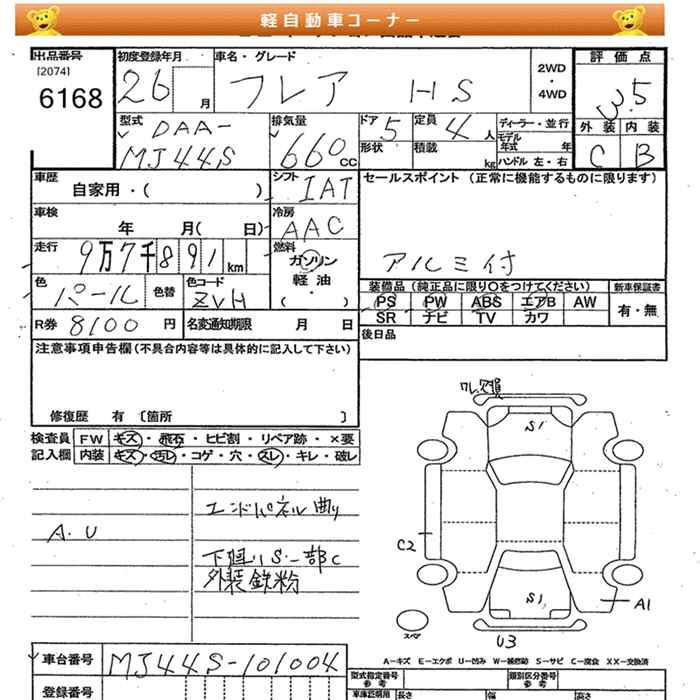 軽自動車コーナー
出品番号 初度登録年月 車名・グレード 評価点
[2074]
6168 26 月 フレア HS 2WD ・ 4WD 3.5
型式 排気量 ドア 定員 ディーラー・並行 外装 内装
DAA- 5 4人 モデル年式 年
MJ44S 660cc 形状 積載 kg ハンドル 左・右 C B
車歴 シフト セールスポイント (正常に機能するものに限ります)
自家用・( ) IAT
車検 冷房
年 月( 日) AAC
走行 燃料
9万7千891km ガソリン アルミ付
色 色替 色コード 軽油
パール ZVH ( ・ ) 装備品 (純正品に限り○をつけてください) 新車保証書
PS PW ABS エアB AW 有・無
SR ナビ TV カワ
R券 8100円 名変通知期限 月 日 後日品
注意事項申告欄 (不具合内容等は具体的に記入して下さい)
修復歴 有 〔箇所 〕
検査員 FW キズ・飛石・ヒビ割・リペア跡・×要
記入欄 内装 キズ・汚レ・コゲ・穴・スレ・キレ・破レ
エンドパネル曲り
A.U
下廻りS.一部C
外装鉄粉
ワレ.欠損
S1
C2
S1
A1
スペア
U3
A-キズ E-エクボ U-凹み W-補修跡 S-サビ C-腐食 XX-交換済
車台番号 MJ44S-101004
型式指定番号 参考 類別区分番号 参考
登録番号 車庫証明用 長さ 幅 高さ